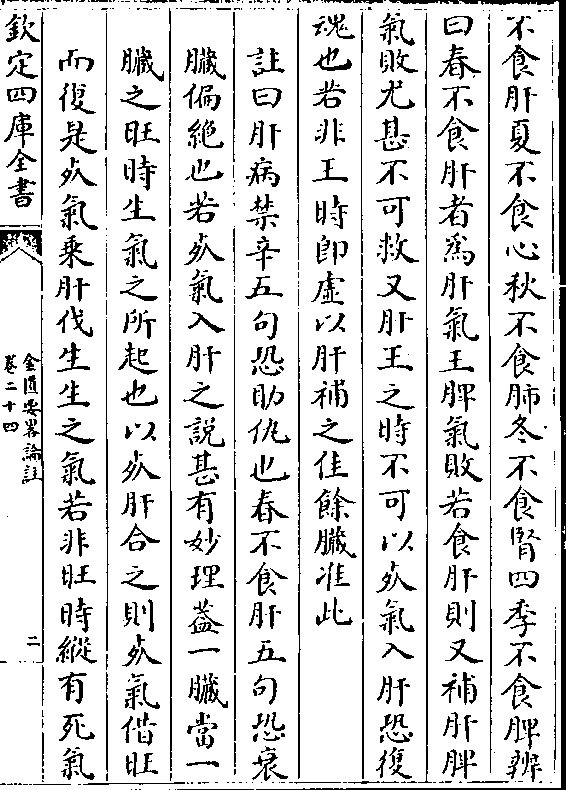 不食肝夏不食心秋不食肺冬不食腎四季不食脾辨
曰春不食肝者為肝氣王脾氣敗若食肝則又補肝脾
氣敗尤甚不可救又肝王之時不可以死氣入肝恐復
魂也若非王時即虛以肝補之佳餘臟准此
註曰肝病禁辛五句恐助仇也春不食肝五句恐衰
臟偏絶也若死氣入肝之說甚有妙理蓋一臟當一
臟之旺時生氣之所起也以死肝合之則死氣借旺
而復是死氣乘肝伐生生之氣若非旺時縱有死氣
欽定四庫全書
金匱要畧論註
卷二十四
二